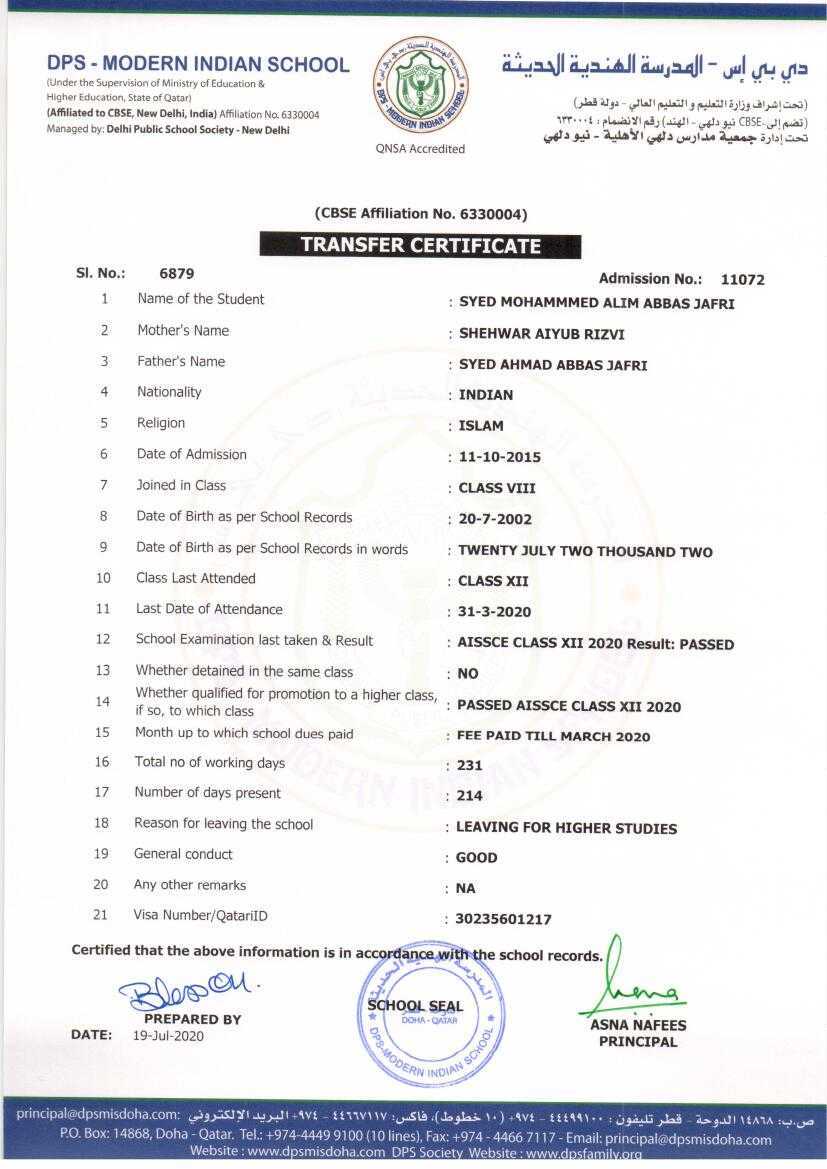 DPS - MODERN INDIAN SCHOOL
(Under the Supervision of Ministry of Education &
Higher Education, State of Qatar)
(Affiliated to CBSE, New Delhi, India) Affiliation No. 6330004
Managed by: Delhi Public School Society - New Delhi
DPS - MODERN INDIAN SCHOOL
QNSA Accredited
دي بي إس - المدرسة الهندية الحديثة
(تحت إشراف وزارة التعليم و التعليم العالي - دولة قطر)
(تنضم إلى-CBSE نيو دلهي - الهند) رقم الانضمام : ٦٣٣٠٠٠٤
تحت إدارة جمعية مدارس دلهي الأهلية - نيو دلهي
(CBSE Affiliation No. 6330004)
TRANSFER CERTIFICATE
Sl. No.: 6879
Admission No.: 11072
1 Name of the Student : SYED MOHAMMMED ALIM ABBAS JAFRI
2 Mother's Name : SHEHWAR AIYUB RIZVI
3 Father's Name : SYED AHMAD ABBAS JAFRI
4 Nationality : INDIAN
5 Religion : ISLAM
6 Date of Admission : 11-10-2015
7 Joined in Class : CLASS VIII
8 Date of Birth as per School Records : 20-7-2002
9 Date of Birth as per School Records in words : TWENTY JULY TWO THOUSAND TWO
10 Class Last Attended : CLASS XII
11 Last Date of Attendance : 31-3-2020
12 School Examination last taken & Result : AISSCE CLASS XII 2020 Result: PASSED
13 Whether detained in the same class : NO
14 Whether qualified for promotion to a higher class,
if so, to which class : PASSED AISSCE CLASS XII 2020
15 Month up to which school dues paid : FEE PAID TILL MARCH 2020
16 Total no of working days : 231
17 Number of days present : 214
18 Reason for leaving the school : LEAVING FOR HIGHER STUDIES
19 General conduct : GOOD
20 Any other remarks : NA
21 Visa Number/QatariID : 30235601217
Certified that the above information is in accordance with the school records.
PREPARED BY
DATE: 19-Jul-2020
المدرسة الهندية الحديثة
SCHOOL SEAL
DOHA - QATAR
DPS-MODERN INDIAN SCHOOL
ASNA NAFEES
PRINCIPAL
ص.ب: ١٤٨٦٨ الدوحة - قطر تليفون : ٤٤٤٩٩١٠٠ - ٩٧٤+ (١٠ خطوط)، فاكس: ٤٤٦٦٧١١٧ - ٩٧٤+ البريد الإلكتروني :principal@dpsmisdoha.com
P.O. Box: 14868, Doha - Qatar. Tel.: +974-4449 9100 (10 lines), Fax: +974 - 4466 7117 - Email: principal@dpsmisdoha.com
Website : www.dpsmisdoha.com DPS Society Website : www.dpsfamily.org